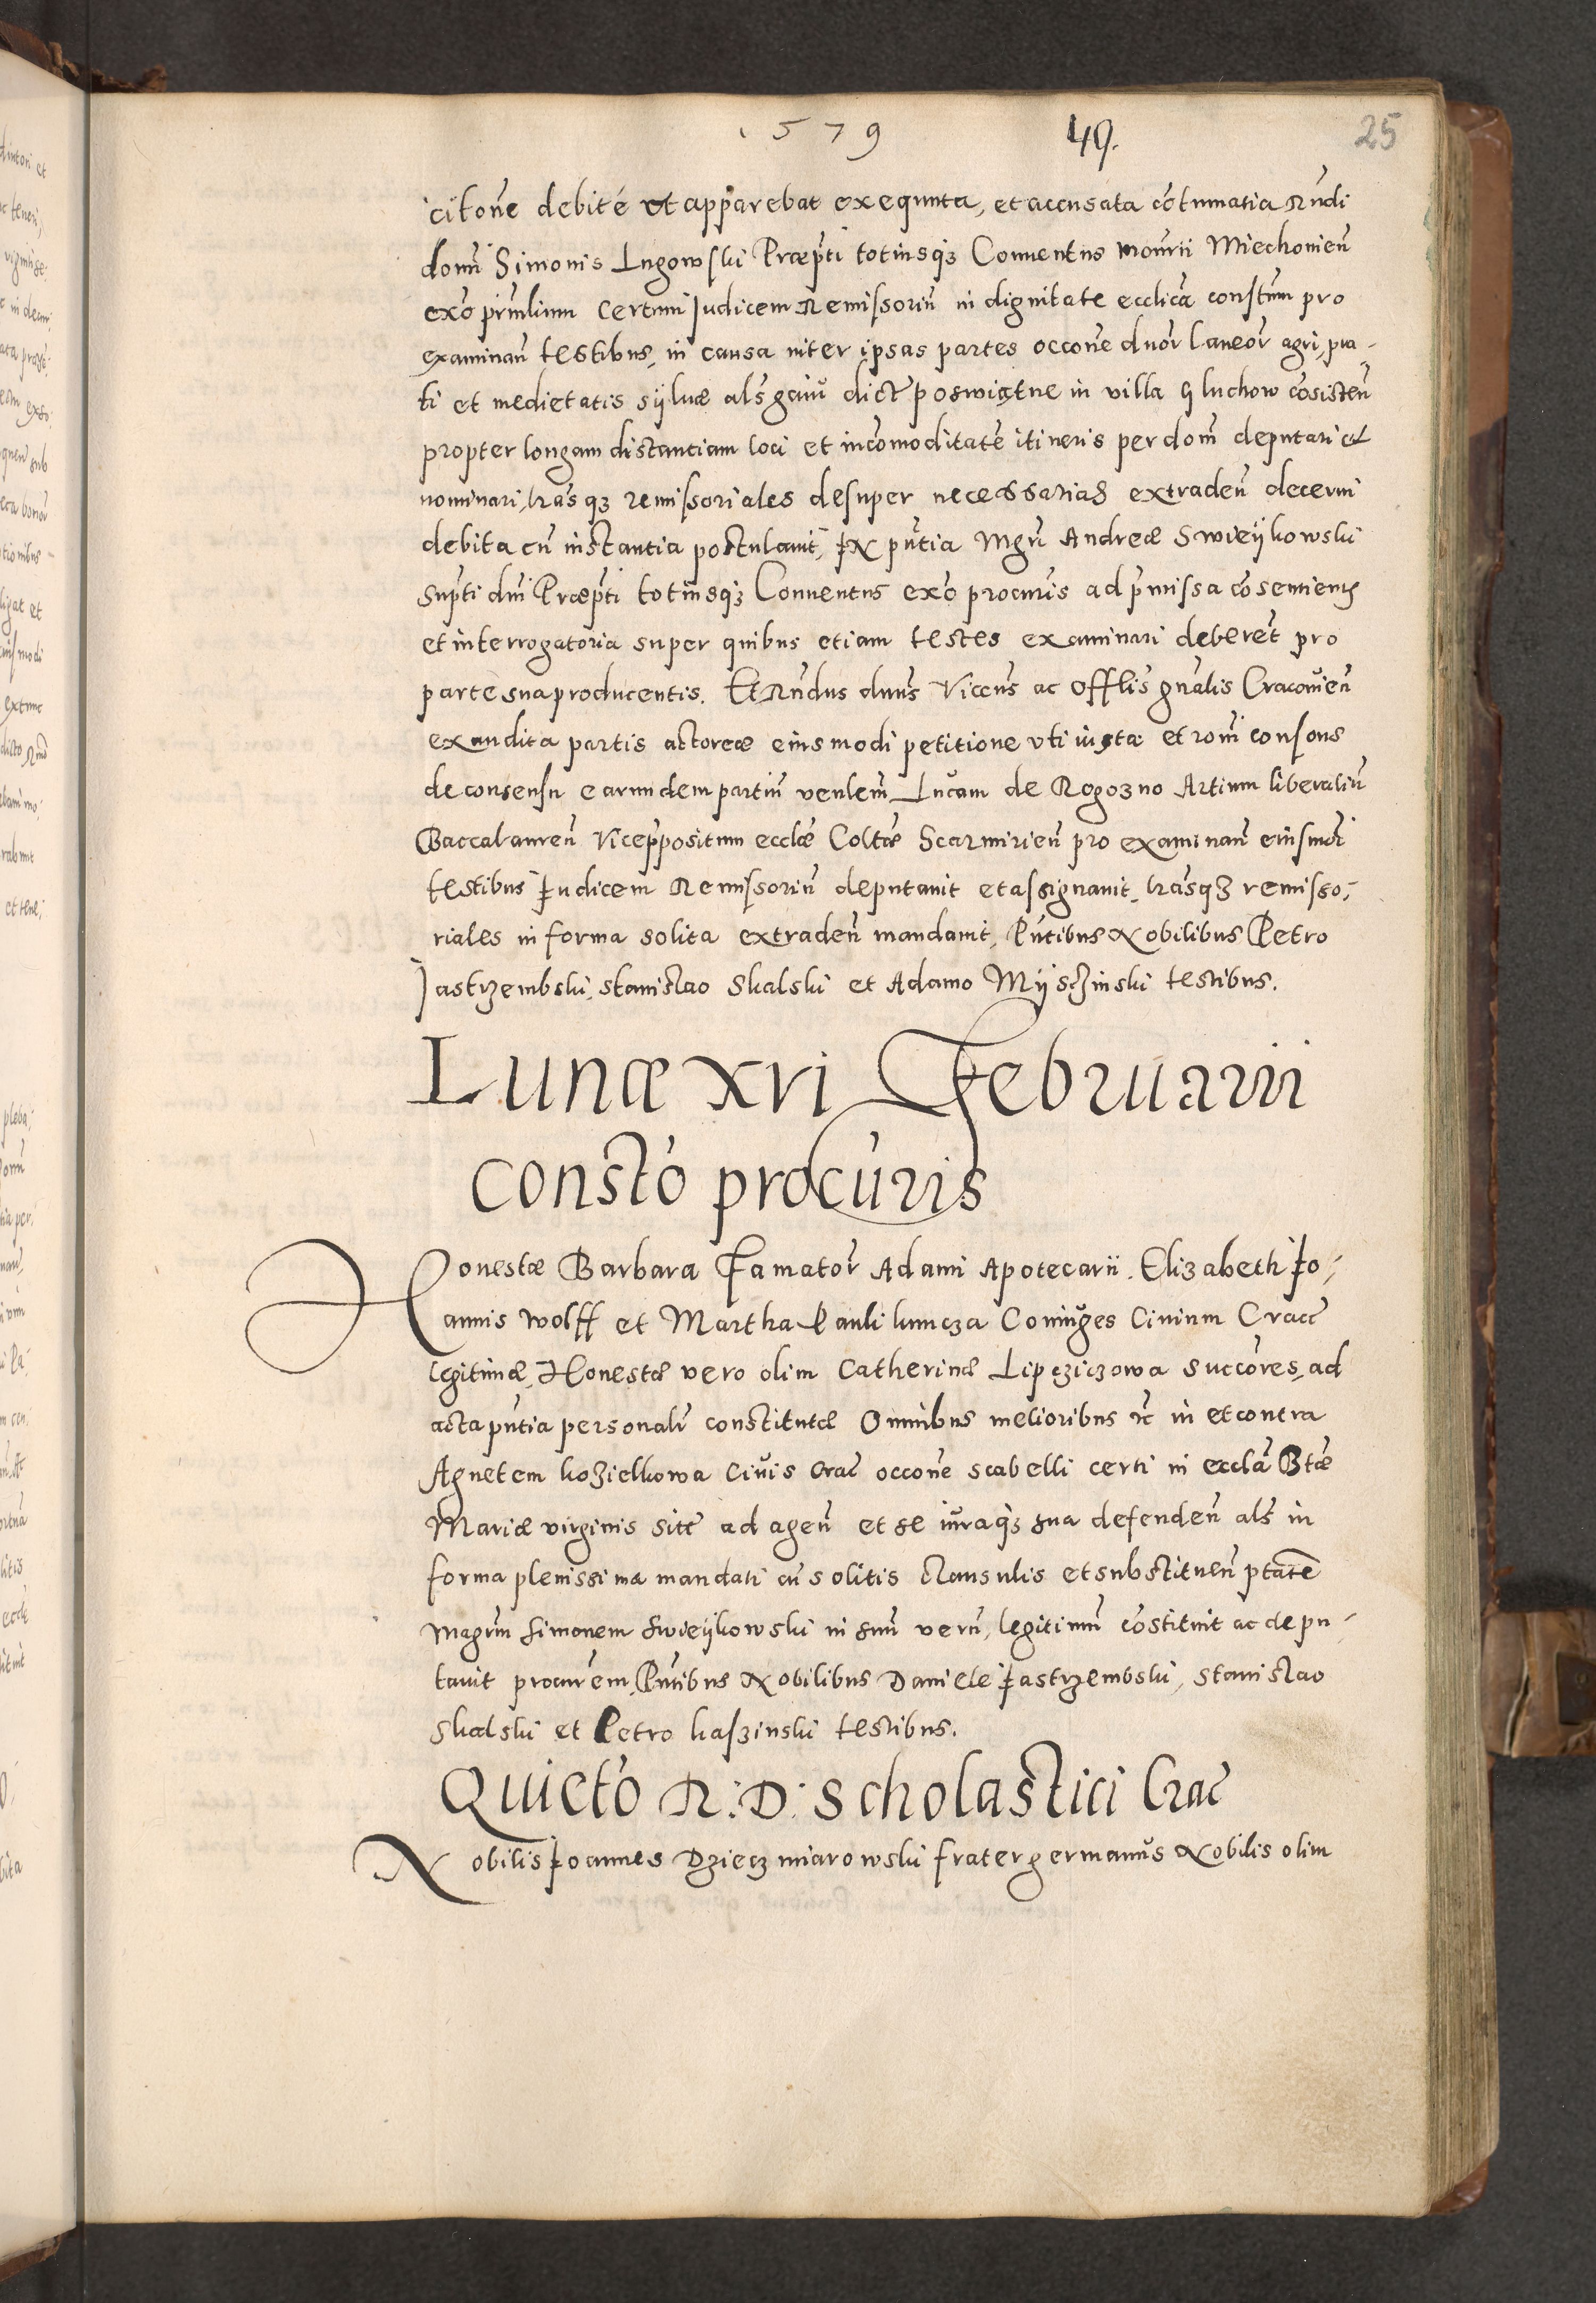 1579 49. 25
citone debite ut apparebat exequuta, et accusata cotumatia Rndi
domi Simonis Lugowski Præpti totiusqz Conuentus monrii Miechouien
exo prinlium certum Judicem Remissoriu in dignitate ecclica constum pro
examinan testibus, in causa inter ipsas partes occone duor laneor agri, pra-
ti et medietatis syluæ als gaiu dict poswiętne in villa Gluchow cosisten
propter longam distantiam loci et incomoditate itineris per dom deputari et
nominari, lrasqz remissoriales desuper necessarias extraden decerni
debita cu instantia postulauit, In pntia Mgri Andreæ Swieykowski
supti dni Præpti totiusqz Conuentus exo procuris ad pmissa cosentientis
et interrogatoria super quibus etiam testes examinari deberet pro
parte sua producentis. Et Rndus dnus Vicens ac Offlis gnalis Cracouien
exaudita partis actoreæ eiusmodi petitione uti iusta et roni consons
de consensu earundem partiu venlem Lucam de Rogozno Artium liberaliu
Baccalaureu Viceppositum ecclæ Coltæ Scarmirien pro examinan eiusmoi
testibus Judicem Remissoriu deputauit et assignauit, lrasqz remisso-
riales in forma solita extraden mandauit, Pntibus Nobilibus Petro
Jastrzembski, Stanislao Skalski et Adamo Myschinski testibus.
Lunæ xvi Februarii
Consto procuris
Honestæ Barbara Famator Adami Apotecarii, Elizabeth Jo-
annis Wolff et Martha Pauli kuncza Coniuges Ciuium Cracc
legitimæ, Honestæ vero olim Catherinæ Lipcziczowa succores, ad
acta pntia personalr constitutæ Omnibus melioribus etc in et contra
Agnetem kozielkowa Ciuis Crac occone scabelli certi in eccla Btæ
Mariæ virginis sitt ad agen et se iuraqz sua defenden als in
forma plenissima mandati cu solitis clausulis et substituen ptate
Magrum Simonem Swieykowski in suu veru, legitimu costituit ac depu-
tauit procurem, Pntibus Nobilibus Daniele Jastrzembski, Stanislao
Skalski et Petro kaszinski testibus.
Quieto R: D: Scholastici Crac
Nobilis Joannes Dzieczmiarowski frater germanus Nobilis olim